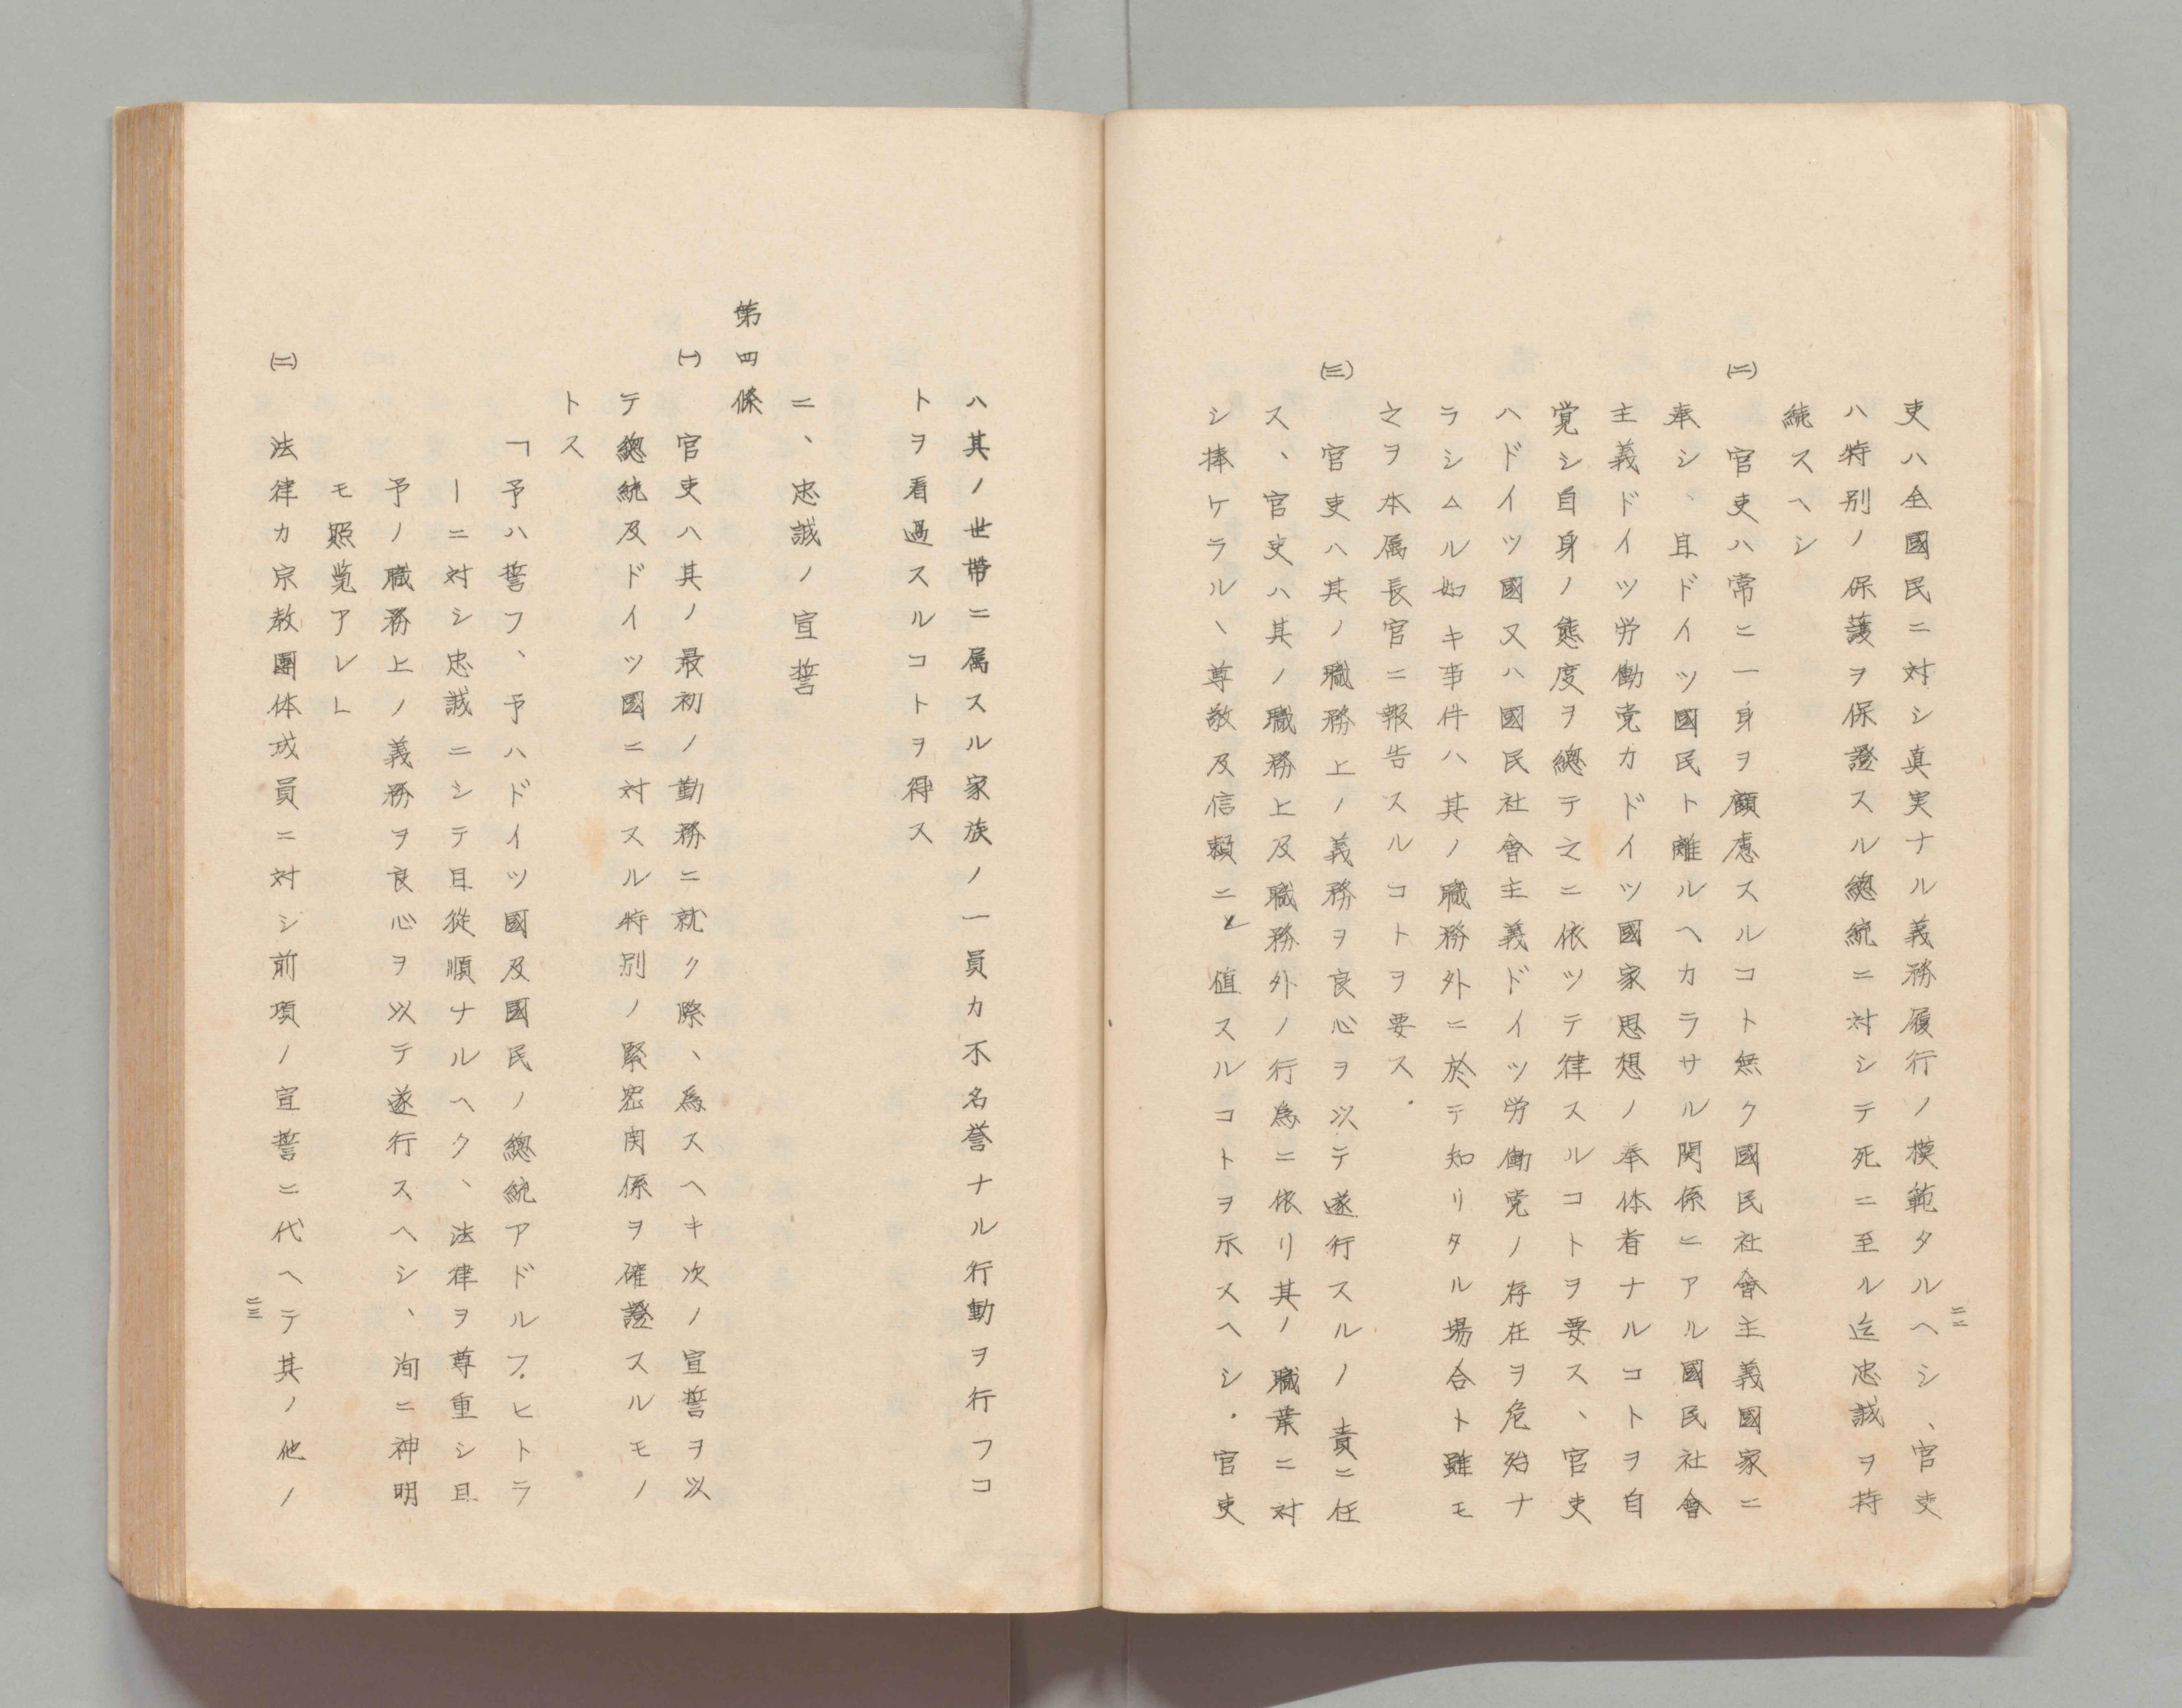 吏ハ全國民ニ対シ真実ナル義務履行ノ模範タルヘシ、官吏
ハ特別ノ保護ヲ保證スル總統ニ対シテ死ニ至ル迄忠誠ヲ持
続スヘシ
(二) 官吏ハ常ニ一身ヲ顧慮スルコト無ク國民社會主義國家ニ
奉シ、且ドイツ國民ト離ルヘカラサル関係ニアル國民社會
主義ドイツ労働党カドイツ國家思想ノ奉体者ナルコトヲ自
覚シ自身ノ態度ヲ總テ之ニ依ツテ律スルコトヲ要ス、官吏
ハドイツ國又ハ國民社會主義ドイツ労働党ノ存在ヲ危殆ナ
ラシムル如キ事件ハ其ノ職務外ニ於テ知リタル場合ト雖モ
之ヲ本属長官ニ報告スルコトヲ要ス
(三) 官吏ハ其ノ職務上ノ義務ヲ良心ヲ以テ遂行スルノ責ニ任
ス、官吏ハ其ノ職務上及職務外ノ行為ニ依リ其ノ職業ニ対
シ捧ケラルヽ尊敬及信頼ニ値スルコトヲ示スヘシ・官吏
二二
ハ其ノ世帯ニ属スル家族ノ一員カ不名誉ナル行動ヲ行フコ
トヲ看過スルコトヲ得ス
二、忠誠ノ宣誓
第四條
(一) 官吏ハ其ノ最初ノ勤務ニ就ク際、為スヘキ次ノ宣誓ヲ以
テ總統及ドイツ國ニ対スル特別ノ緊密関係ヲ確證スルモノ
トス
「予ハ誓フ、予ハドイツ國及國民ノ總統アドルフ・ヒトラ
ーニ対シ忠誠ニシテ且從順ナルヘク、法律ヲ尊重シ且
予ノ職務上ノ義務ヲ良心ヲ以テ遂行スヘシ、洵ニ神明
モ照覧アレ」
(二) 法律カ宗教團体成員ニ対シ前項ノ宣誓ニ代ヘテ其ノ他ノ
二三